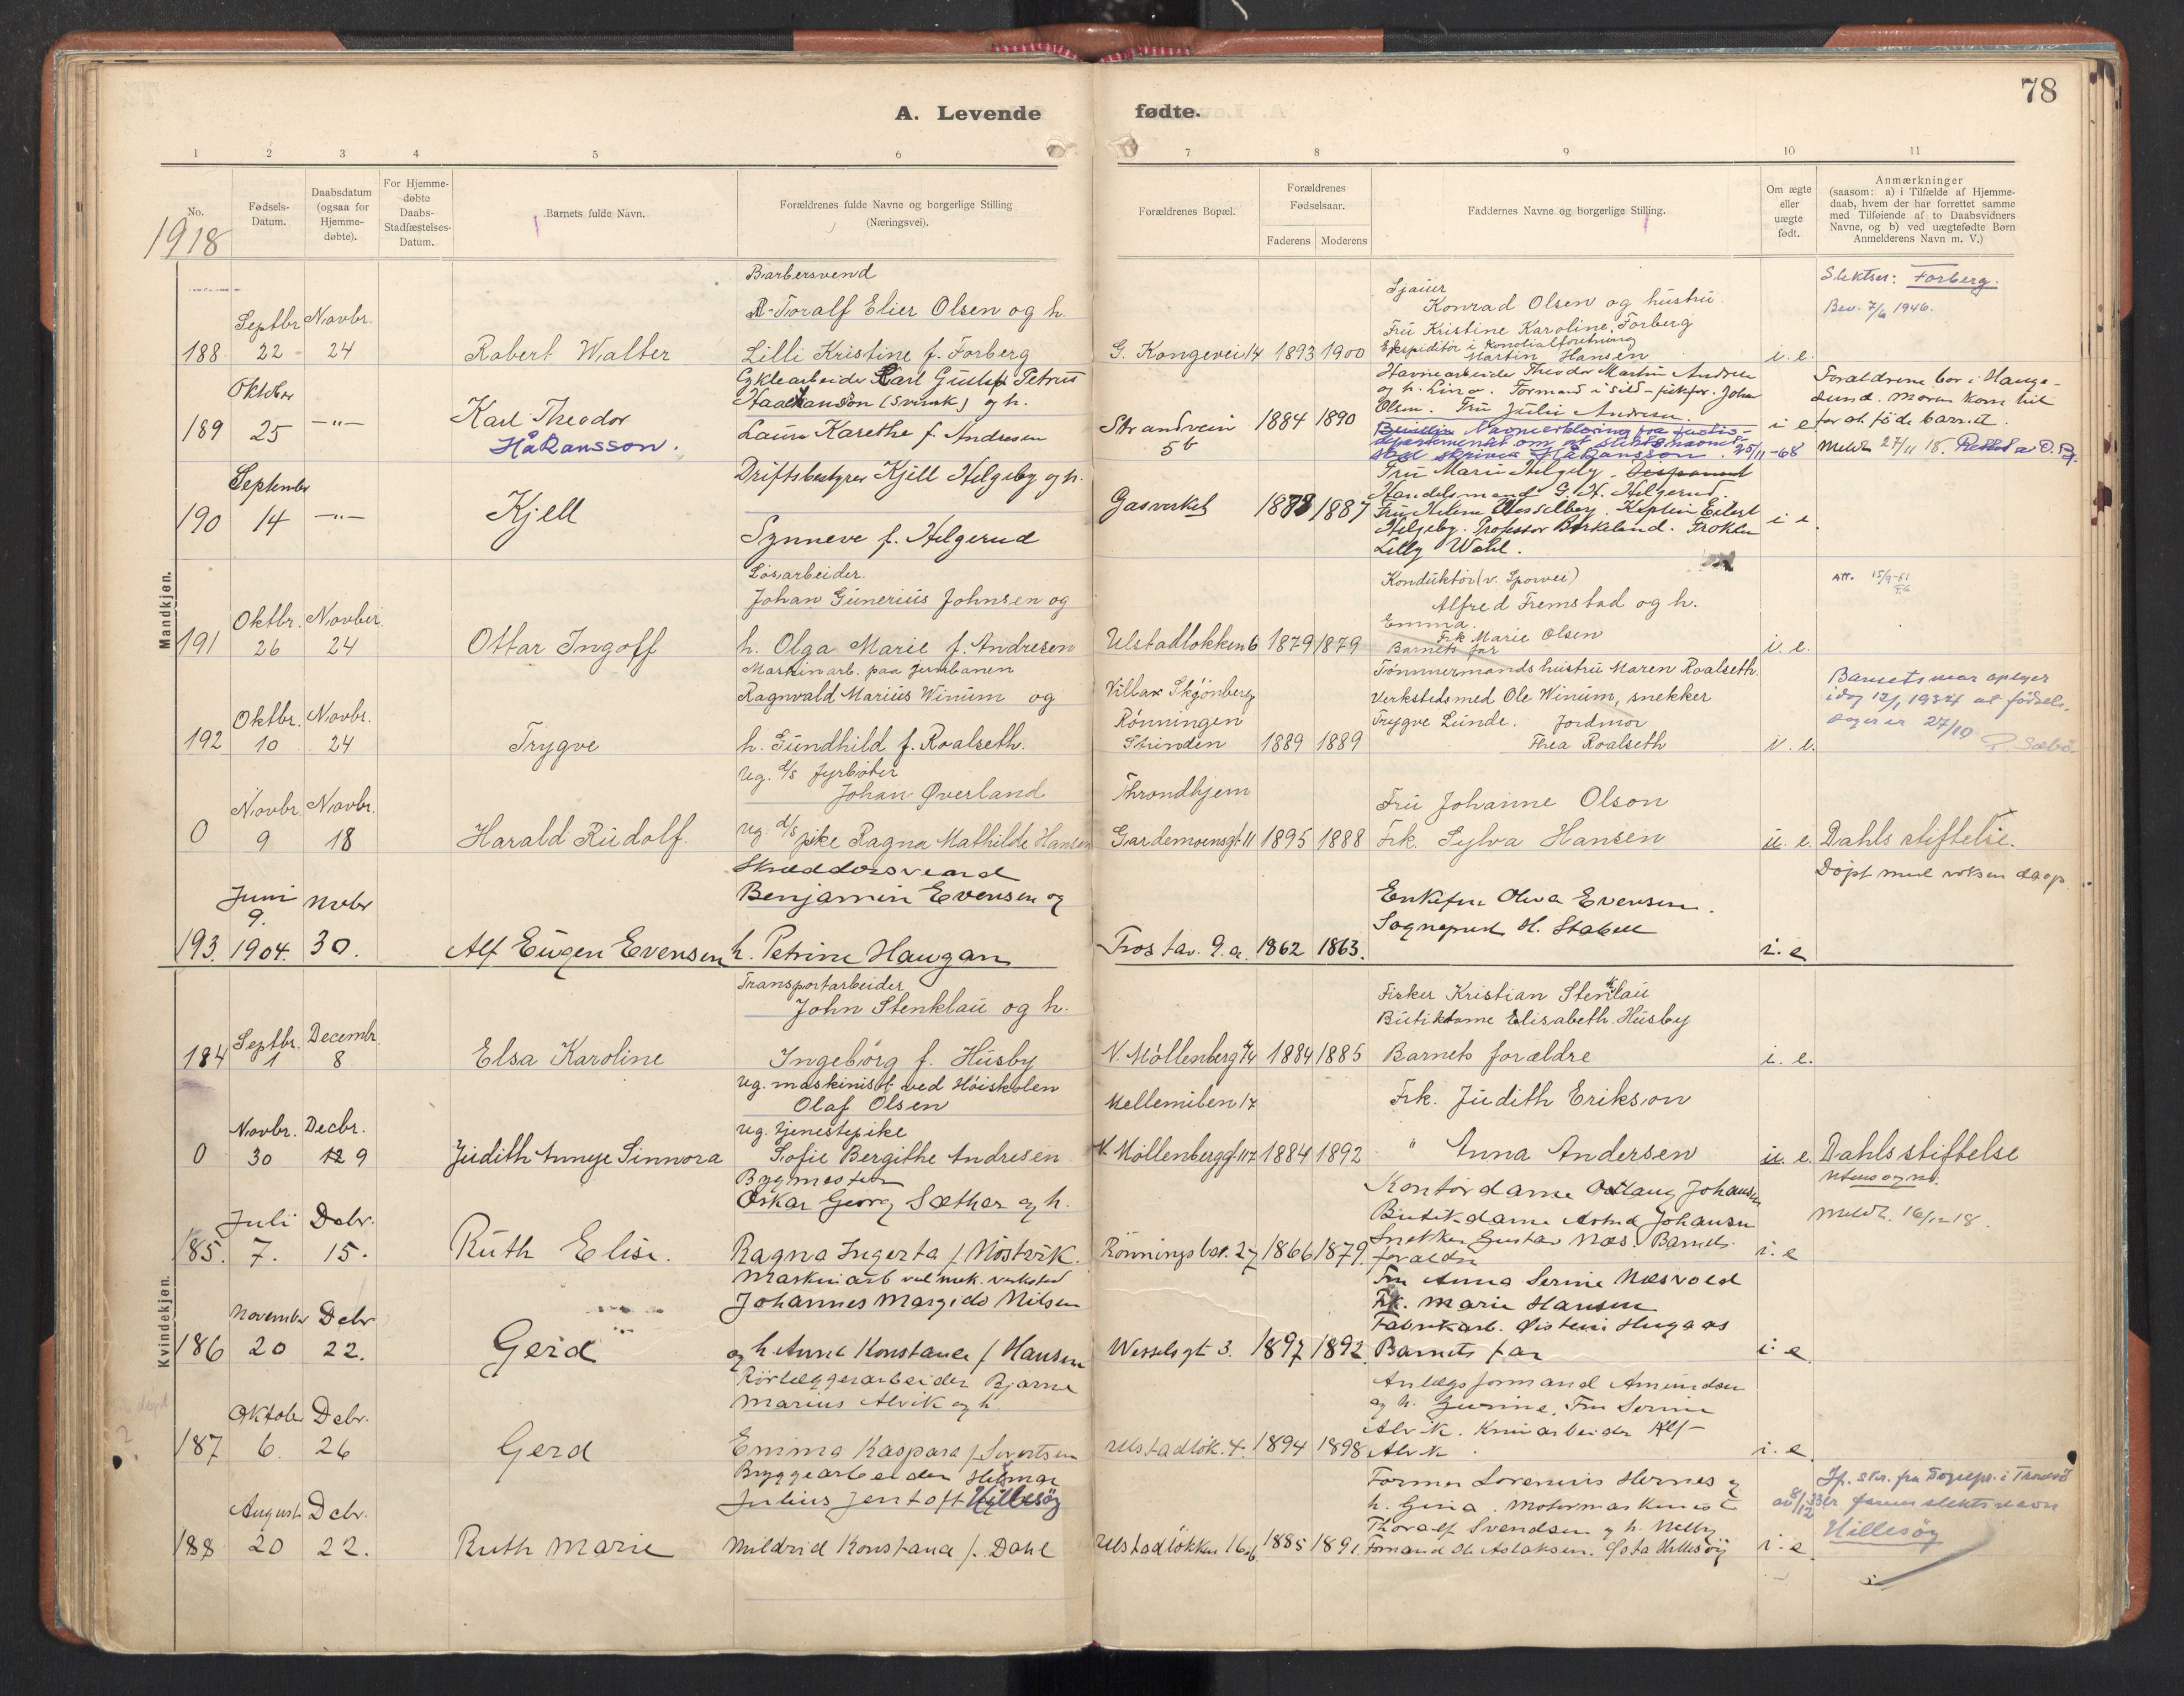 78
A. Levende fødte.
1 2 3 4 5 6 7 8 9 10 11
No.
Fødsels-
Datum.
Daabsdatum
(ogsaa for
Hjemme-
døbte).
For Hjemme-
døbte
Daabs-
Stadfæstelses-
Datum.
Barnets fulde Navn.
Forældrenes fulde Navne og borgerlige Stilling
(Næringsvei).
Forældrenes Bopæl.
Forældrenes
Fødselsaar.
Faderens Moderens
Faddernes Navne og borgerlige Stilling.
Om ægte
eller
uægte
født.
Anmærkninger
(saasom: a) i Tilfælde af Hjemme-
daab, hvem der har forrettet samme
med Tilføiende af to Daabsvidners
Navne, og b) ved uægtefødte Børn
Anmelderens Navn m. V.)
1918
Mandkjøn.
188 Septbr. 22 Novbr. 24
Robert Walter
Barbersvend
Toralf Elier Olsen og h.
Lilli Kristine f. Forberg
G. Kongevei 14 1893 1900
Sjauer
Konrad Olsen og hustru
Fru Kristine Karoline Forberg
Ekspeditør i
Martin Hansen
i. e.
Slektsn: Forberg.
Bev. 7/6 1946.
189 Oktober 25 —"—
Karl Theodor
Håkansson.
Cyklearbeider Karl Gustaf Petrus
(svensk) og h.
Laura Karethe f. Andresen
Strandvein
5b
1884 1890
Havnearbeider Theodor Martin Andresen
og h. Lina. Formand i Johan
Olsen. Fru Julie Andresen.
Navneerklæring fra Justis-
departementet om at slektsnavnet
skal skrives Håkansson. 25/11-68
i e
Forældrene bor i Hauge-
sund. Moren kom hit
for at føde barnet.
Meldt 27/11 18.
190 September 14 —"—
Kjell
Driftsbestyrer Kjell Helgeby og h.
Synneve f. Helgerud
Gasverket 1887
Fru Marie Helgeby.
Handelsmand G. H. Helgerud.
Fru Helene Wesselberg. Kaptein Eilert
Helgeby. Professor Birkeland. Frøken
Lilly Wahl.
i e.
191 Oktbr. 26 Novber. 24
Ottar Ingolf
Løsarbeider.
Johan Gunerius Johnsen og
h. Olga Marie f. Andresen
Ulstadløkken 6 1879 1879
Konduktør (v. Sporvei)
Alfred Fremstad og h.
Emma.
Frk Marie Olsen
Barnets far
i. e.
Att. 15/9-61
192 Oktbr. 10 Novbr. 24
Trygve
Maskinarb. paa Jernbanen
Ragnvald Marius Winum og
h. Gundhild f. Roalseth.
Villa Skjønberg
Rønningen
Strinden
1889 1889
Tømmermands hustru Maren Roalseth.
Verkstedsmed Ole Winum, snekker
Trygve Lunde. Jordmor
Thea Roalseth
i. e.
Barnets mor opgir
idag 12/1 1934 at fødsels-
dagen er 27/10
P. Sæbø
0 Novbr. 9 Novbr. 18
Harald Rudolf.
Ug. Fyrbøter
Johan Øverland
Ug. pike Ragna Mathilde Hansen
Throndhjem
Gardemoensgt 11 1895 1888
Fru Johanne Olson
Frk. Sylva Hansen
u. e.
Dahls stiftelse.
193. Juni 9. 1904. Novbr 30.
Alf Eugen Evensen
Skræddersvend
Benjamin Evensen og
h. Petrine Haugan
Frostav. 9.a. 1862 1863.
Enkefru Olava Evensen.
Sogneprest H. Stabell
i. e
Døpt med voksen daap.
Kvindekjøn.
184 Septbr. 1 Decembr. 8
Elsa Karoline
Transportarbeider
John Stenklau og h.
Ingeborg f. Husby
V. Møllenberg 1884 1885
Fisker Kristian Stenklau
Butikdame Elisabeth Husby
Barnets forældre
i. e.
0 Novbr. 30 Decbr. 9
Judith Annye Sinnora
Ug. maskinist ved Høiskolen
Olaf Olsen
Ug. tjenestepike
Sofie Bergithe Andresen
Mellemilen 17
V. Møllenberggt. 117 1884 1892
Frk. Judith Erikson
" Anna Andersen
u. e.
Dahls stiftelse
utensogns.
Meldt. 16/12 18.
185. Juli 7. Debr. 15.
Ruth Elise.
Bygmester
Oskar Georg Sæther og h.
Ragna Ingerta f. Mostvik.
Rønningsbak. 27 1866 1879.
Kontordame Odlaug Johansen
Butikdame Astrid Johansen
Snekker Gustav Næs. Barnets
forældre
i. e
186 November 20 Debr 22.
Gerd
Maskinarb ved mek. verksted
Johannes Margido Nilsen
og h Anna Konstance f Hansen
Wesselsgt 3. 1897 1892.
Fru Anna Serine Næsvold
Frk. Marie Hansen
Fabrikarb. Øistein Hugaas
Barnets far
i. e
187 Oktober 6. Debr. 26
Gerd
Rørlæggerarbeider Bjarne
Marius Alvik og h.
Emma Kaspara f. Sivertsen
Ulstadløk. 4. 1894 1898
Anlægsformand Amundsen
og h. Gurine. Fru Serine
Alvik. Alf
Alvik
i. e.
188 August 20 Debr. 22.
Ruth Marie
Bryggearbeider Hilmar
Julius Jentoft Hillesøy
Mildrid Konstance f. Dahl
Ulstadløkken 16b 1885 1891.
Former Lorentius Hernes og
h. Gina. Motormaskinist
Thoralf Svendsen og h. Nelly
Formand Ole Aslaksen. Østa Hillesøy
i. e
Jf. skr. fra Sogepr. i Tromsø
av 8/12 33 er farens slektsnavn
Hillesøy